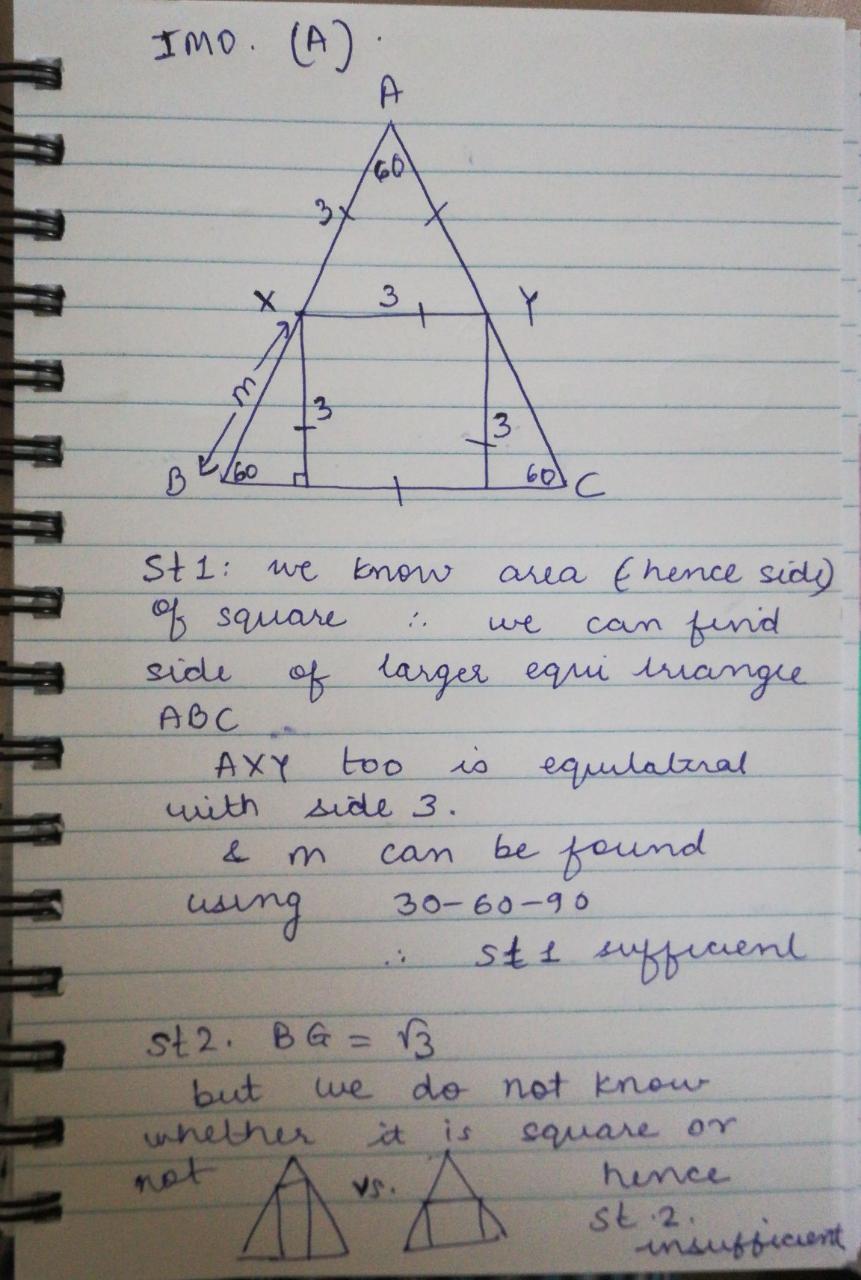 IMO. (A).
A
60
3
X 3 Y
m
3
3
B 60 60 C
St 1: we know area (hence side)
of square ∴ we can find
side of larger equi triangle
ABC
AXY too is equilateral
with side 3.
& m can be found
using 30-60-90
∴ St 1 sufficient
St 2. BG = √3
but we do not know
whether it is square or
not vs. hence
St. 2.
insufficient